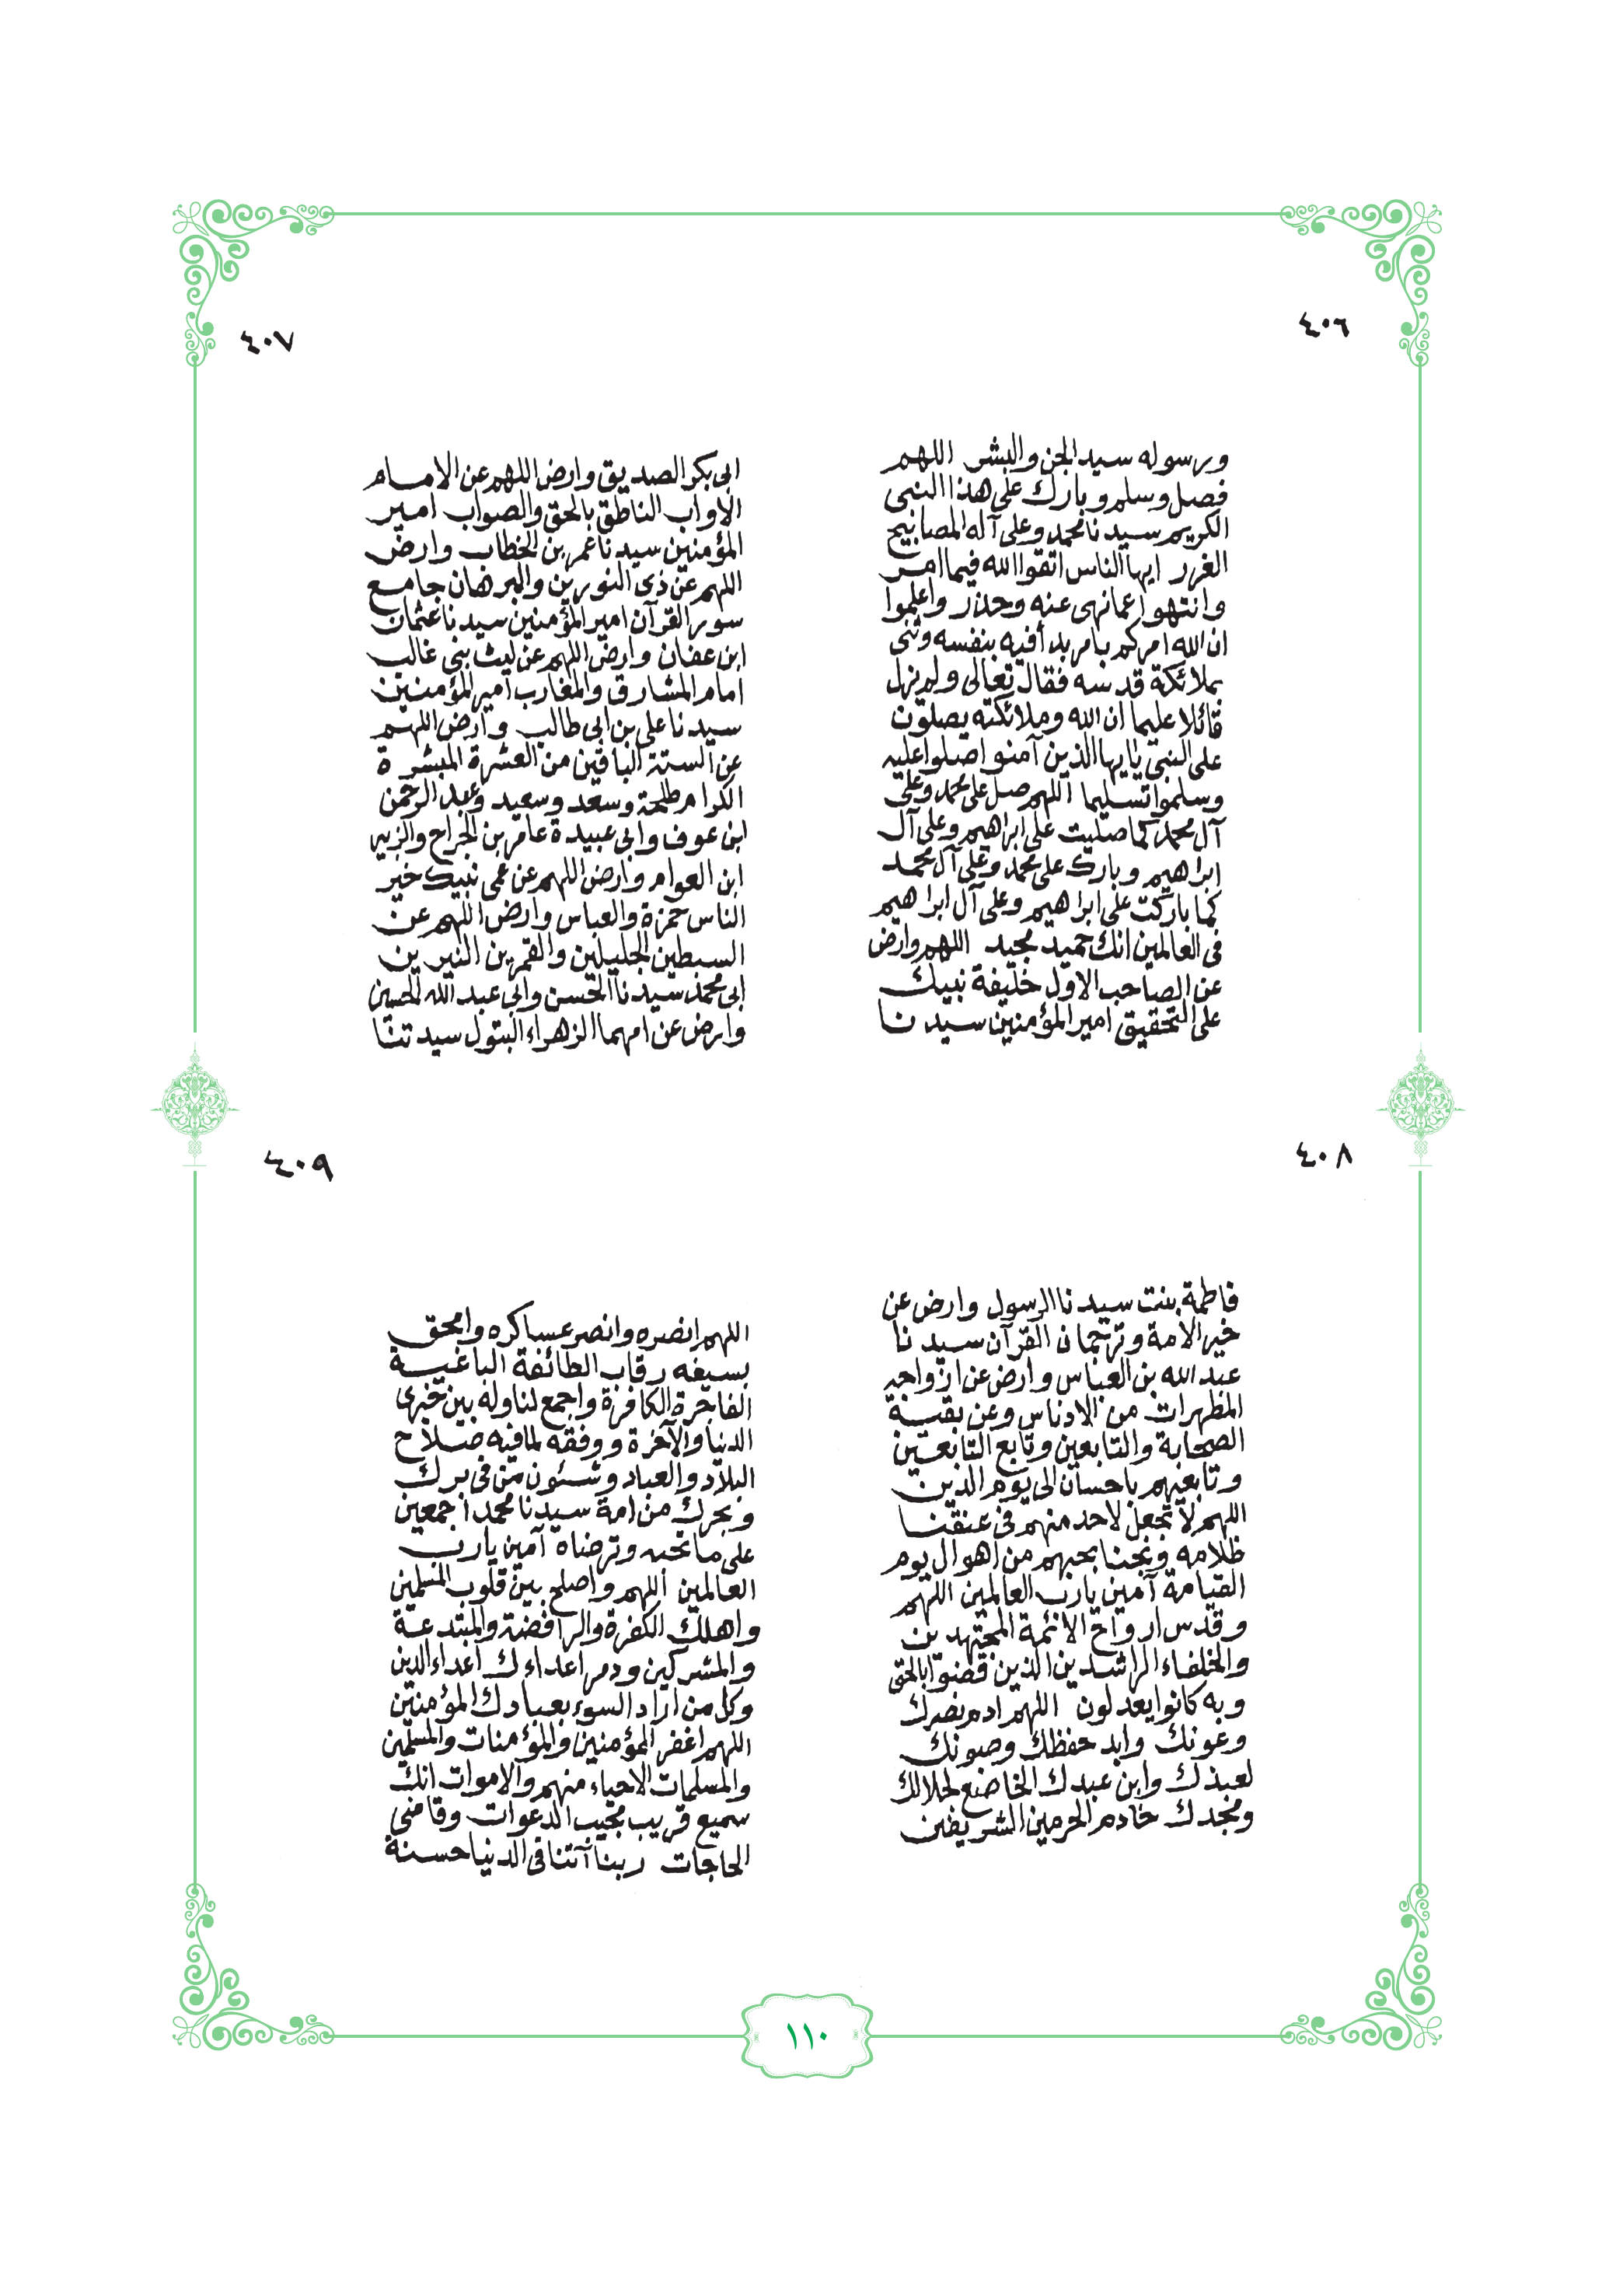 ٤٠٦
ورسوله سيد الجن والبشر اللهم
فصل وسلم وبارك على هذا النبى
الكريم سيدنا محمد وعلى آله المصابيح
الغرر ايها الناس اتقوا الله فيما امر
وانتهوا عما نهى عنه وحذر واعلموا
ان الله امركم بامر بدأ فيه بنفسه وثنى
بملائكة قدسه فقال تعالى ولم يزل
قائلا عليما ان الله وملائكته يصلون
على النبى يا يها الذين آمنوا صلوا عليه
وسلموا تسليما اللهم صل على محمد وعلى
آل محمد كما صليت على ابراهيم وعلى آل
ابراهيم وبارك على محمد وعلى آل محمد
كما باركت على ابراهيم وعلى آل ابراهيم
فى العالمين انك حميد مجيد اللهم وارض
عن الصاحب الاول خليفة نبيك
على التحقيق امير المؤمنين سيدنا
٤٠٧
ابى بكر الصديق وارض اللهم عن الامام
الاواب الناطق بالحق والصواب امير
المؤمنين سيدنا عمر بن الخطاب وارض
اللهم عن ذى النورين والبرهان جامع
سور القرآن امير المؤمنين سيدنا عثمان
ابن عفان وارض اللهم عن ليث بنى غالب
امام المشارق والمغارب امير المؤمنين
سيدنا على بن ابى طالب وارض اللهم
عن الستة الباقين من العشرة المبشرة
الكرام طلحة وسعد وسعيد وعبد الرحمن
ابن عوف وابى عبيدة عامر بن الجراح والزبير
ابن العوام وارض اللهم عن عمى نبيك خير
الناس حمزة والعباس وارض اللهم عن
السبطين الجليلين والقمرين النيرين
ابى محمد سيدنا الحسن وابى عبد الله الحسين
وارض عن امهما الزهراء البتول سيدتنا
٤٠٨
فاطمة بنت سيدنا الرسول وارض عن
خير الامة وترجمان القرآن سيدنا
عبد الله بن العباس وارض عن ازواجه
المطهرات من الادناس وعن بقية
الصحابة والتابعين وتابع التابعين
وتابعيهم باحسان الى يوم الدين
اللهم لا تجعل لاحد منهم فى عنقنا
ظلامه ونجنا بحبهم من اهوال يوم
القيامة آمين يارب العالمين اللهم
وقدس ارواح الائمة المجتهدين
والخلفاء الراشدين الذين قضوا بالحق
وبه كانوا يعدلون اللهم ادم نصرك
وعونك وابد حفظك وصونك
لعبدك وابن عبدك الخاضع لجلالك
ومجدك خادم الحرمين الشريفين
٤٠٩
اللهم انصره وانصر عساكره وامحق
بسيفه رقاب الطائفة الباغية
الفاجرة الكافرة واجمع لنا وله بين خيرى
الدنيا والآخرة ووفقه لما فيه صلاح
البلاد والعباد وشئون من فى برك
وبحرك من امة سيدنا محمد اجمعين
على ما تحبه وترضاه آمين يارب
العالمين اللهم واصلح بين قلوب المسلمين
واهلك الكفرة والرافضة والمبتدعة
والمشركين ودمر اعداءك اعداء الدين
وكل من اراد السوء بعبادك المؤمنين
اللهم اغفر المؤمنين والمؤمنات والمسلمين
والمسلمات الاحياء منهم والاموات انك
سميع قريب مجيب الدعوات وقاضى
الحاجات ربنا آتنا فى الدنيا حسنة
١١٠